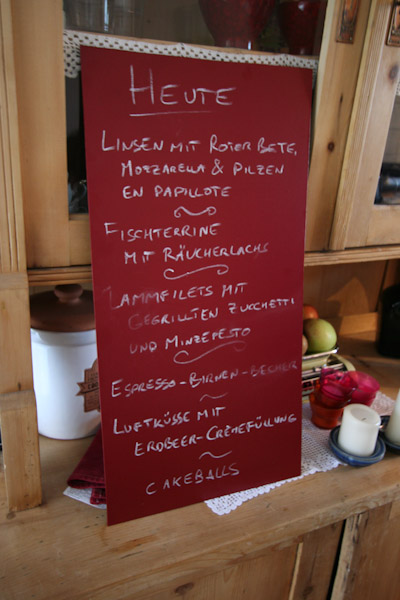 HEUTE
LINSEN MIT ROTER BETE,
MOZZARELLA & PILZEN
EN PAPILLOTE
FISCHTERRINE
MIT RÄUCHERLACHS
LAMMFILETS MIT
GEGRILLTEN ZUCCHETTI
UND MINZEPESTO
ESPRESSO-BIRNEN-BECHER
LUFTKÜSSE MIT
ERDBEER-CREMEFÜLLUNG
CAKEBALLS